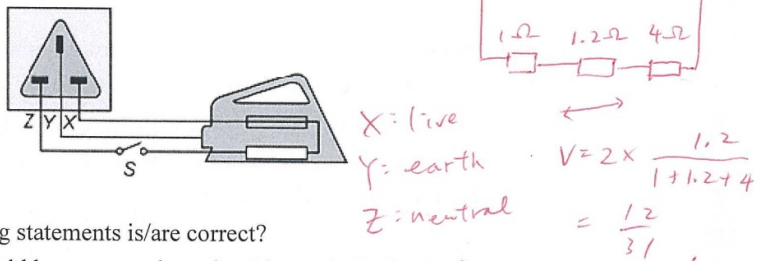 1Ω 1.2Ω 4Ω
Z Y X
S
X: live
Y: earth
Z: neutral
V = 2 × 1.2 / 1 + 1.2 + 4
= 12 / 31
g statements is/are correct?